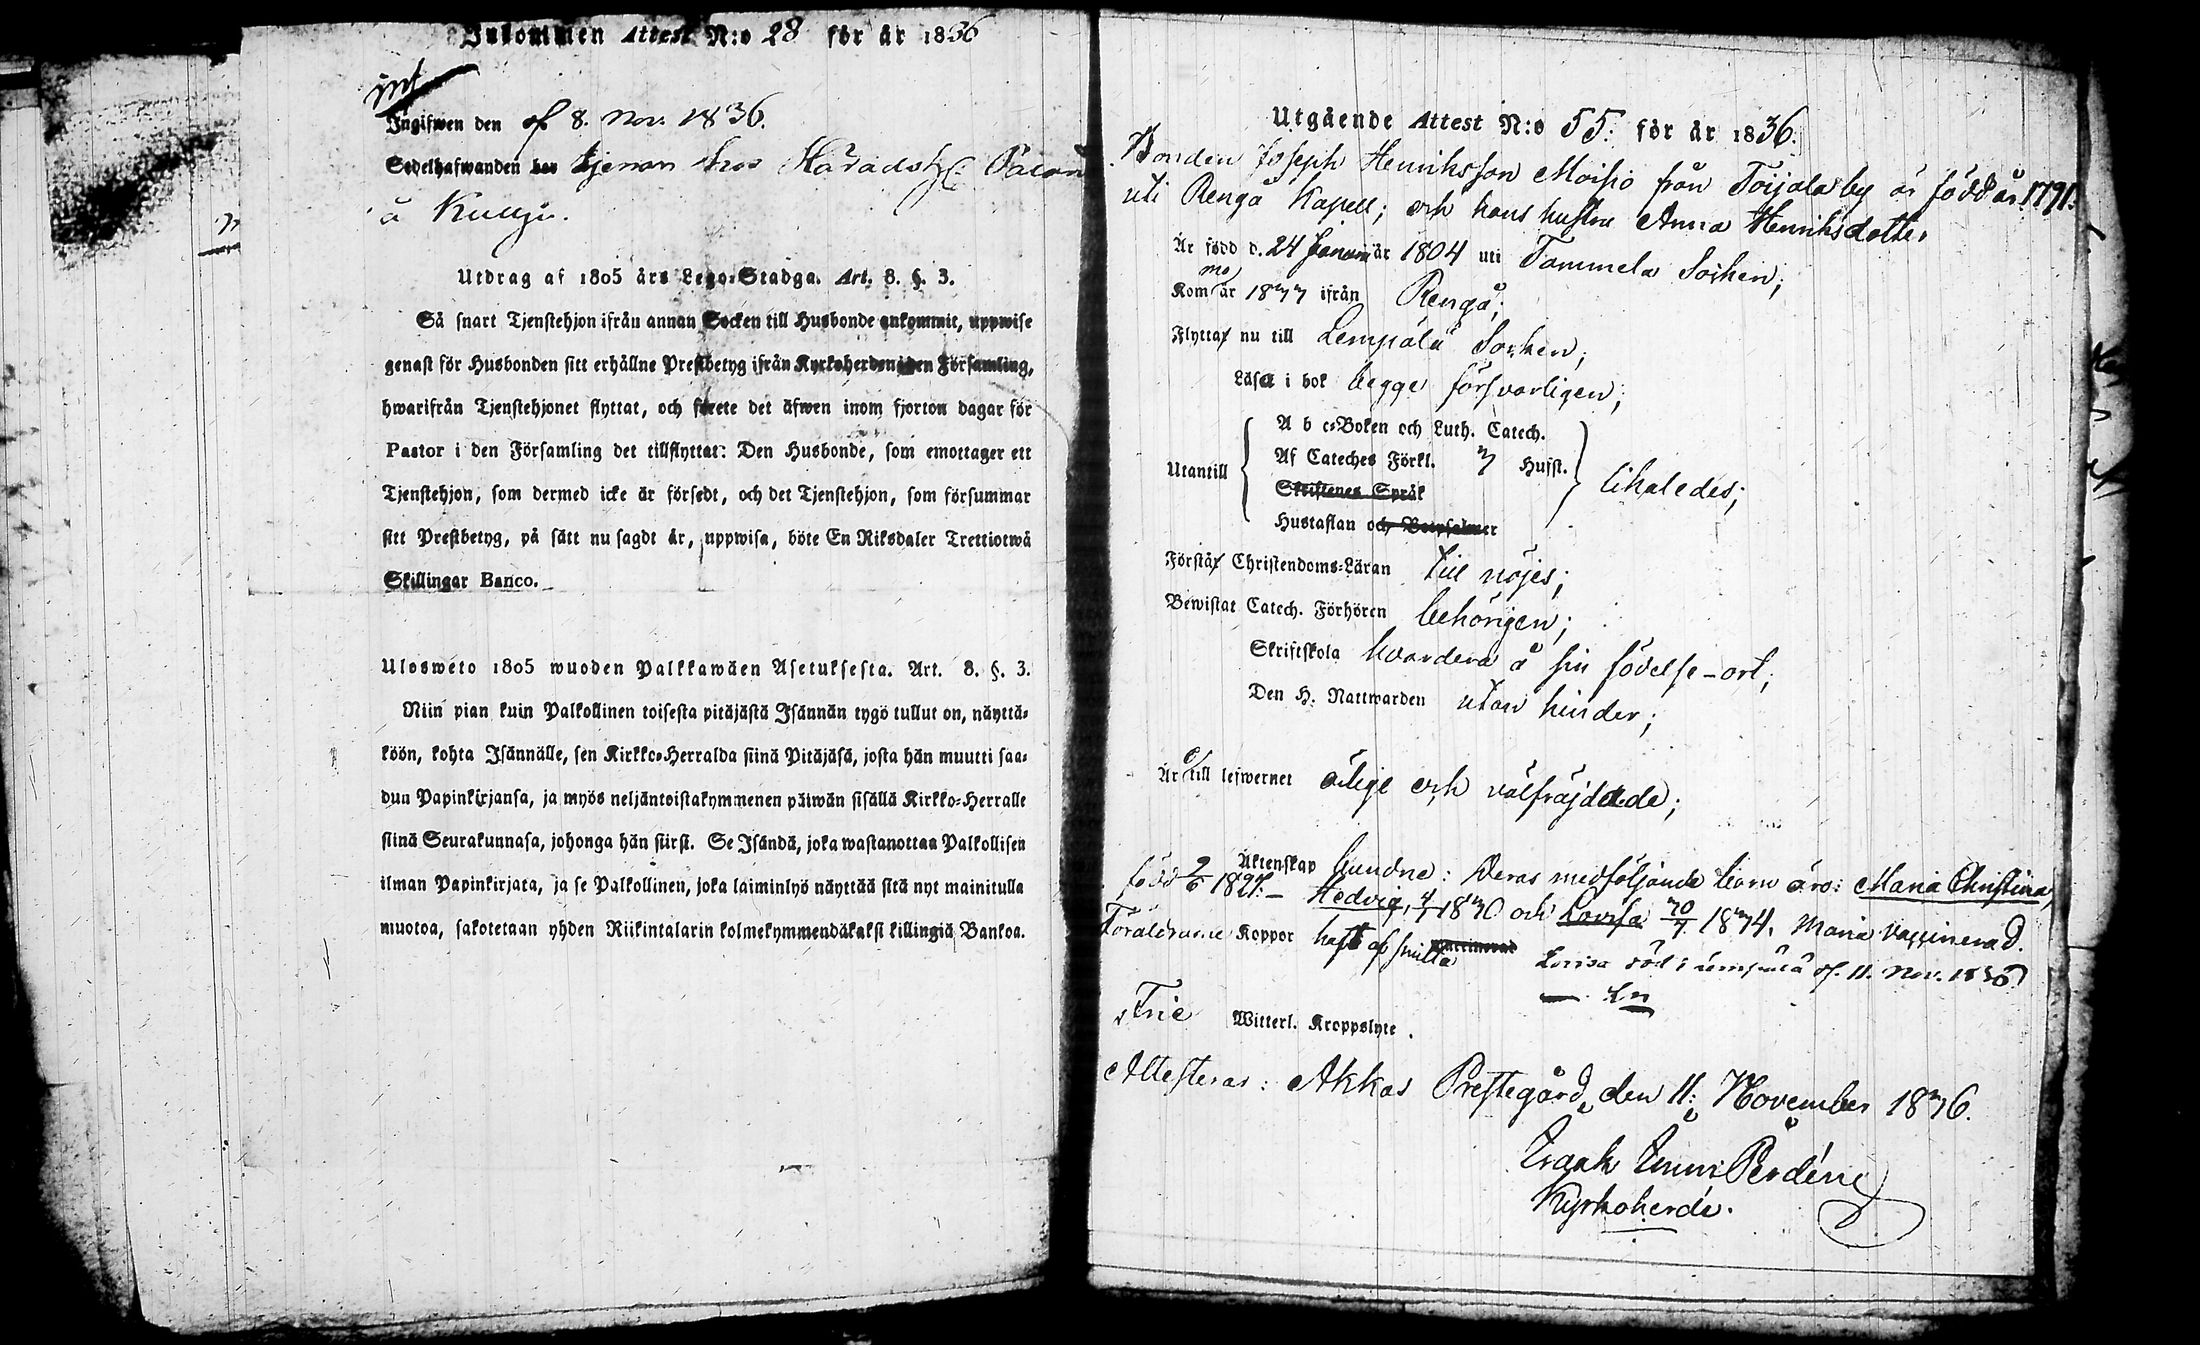 Inkommen Attest N:o 28 för år 1836
Ingifwen den 8. Nov. 1836.
Sedelhafwanden har tjenar hos Häradsh
å
Utdrag af 1805 års Lego-Stadga. Art. 8. §. 3.
Så snart Tjenstehjon ifrån annan Socken till Husbonde ankommit, uppwise
genast för Husbonden sitt erhållne Prestbetyg ifrån Kyrkoherden i den Församling,
hwarifrån Tjenstehjonet flyttat, och förete det äfwen inom fjorton dagar för
Pastor i den Församling det tillflyttat: Den Husbonde, som emottager ett
Tjenstehjon, som dermed icke är försedt, och det Tjenstehjon, som försummar
sitt Prestbetyg, på sätt nu sagdt är, uppwisa, böte En Riksdaler Trettiotwå
Skillingar Banco.
Ulosweto 1805 wuoden Palkkawäen Asetuksesta. Art. 8. §. 3.
Niin pian kuin Palkollinen toisesta pitäjästä Isännän tygö tullut on, näyttä-
köön, kohta Isännälle, sen Kirkko-Herralda siinä Pitäjäsä, josta hän muutti saa-
dun Papinkirjansa, ja myös neljäntoistakymmenen päiwän sisällä Kirkko-Herralle
siinä Seurakunnasa, johonga hän siirsi. Se Isändä, joka wastanottaa Palkollisen
ilman Papinkirjata, ja se Palkollinen, joka laiminlyö näyttää sitä nyt mainitulla
muotoa, sakotetaan yhden Riikintalarin kolmekymmendäkaksi killingiä Bankoa.
Utgående Attest N:o 55. för år 1836.
Bonden Joseph Henriksson Moisio från Toijala by är född år 1791.
uti Rengå Kapell; och hans hustru Anna Henriksdotter
Är född d. 24 Januari år 1804 uti Tammela Socken;
Kommo år 1833 ifrån Rengå;
Flytta nu till Lempälä Socken;
Läsa i bok begge försvarligen;
A b c-Boken och Luth. Catech.
Utantill Af Cateches Förkl. 3 Hufst. likaledes;
Skriftenes Språk
Hustaflan och Botpsalmer
Förstå Christendoms-Läran till nöjes;
Bewistat Catech. Förhören behörigen;
Skriftskola hvardera å sin födelse-ort;
Den H. Nattwarden utan hinder;
Äro till lefwernet ärlige och välfräjdade;
Äktenskap bundne: Deras medföljande barn äro: Maria Christina,
född 2/6 1827. - Hedvig, 4/1 1830 och Lovisa 30/7 1834. Maria vaccinerad.
Föräldrarne Koppor haft af smitta Lovisa död i Lempälä d. 11. Nov. 1836
Frie Witterl. Kroppslyte.
Attesteras: Akkas Prestegård, den 11. November 1836.
Kyrkoherde.